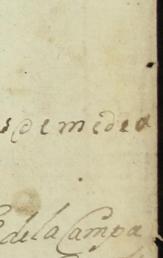 s de medea
de la Campa